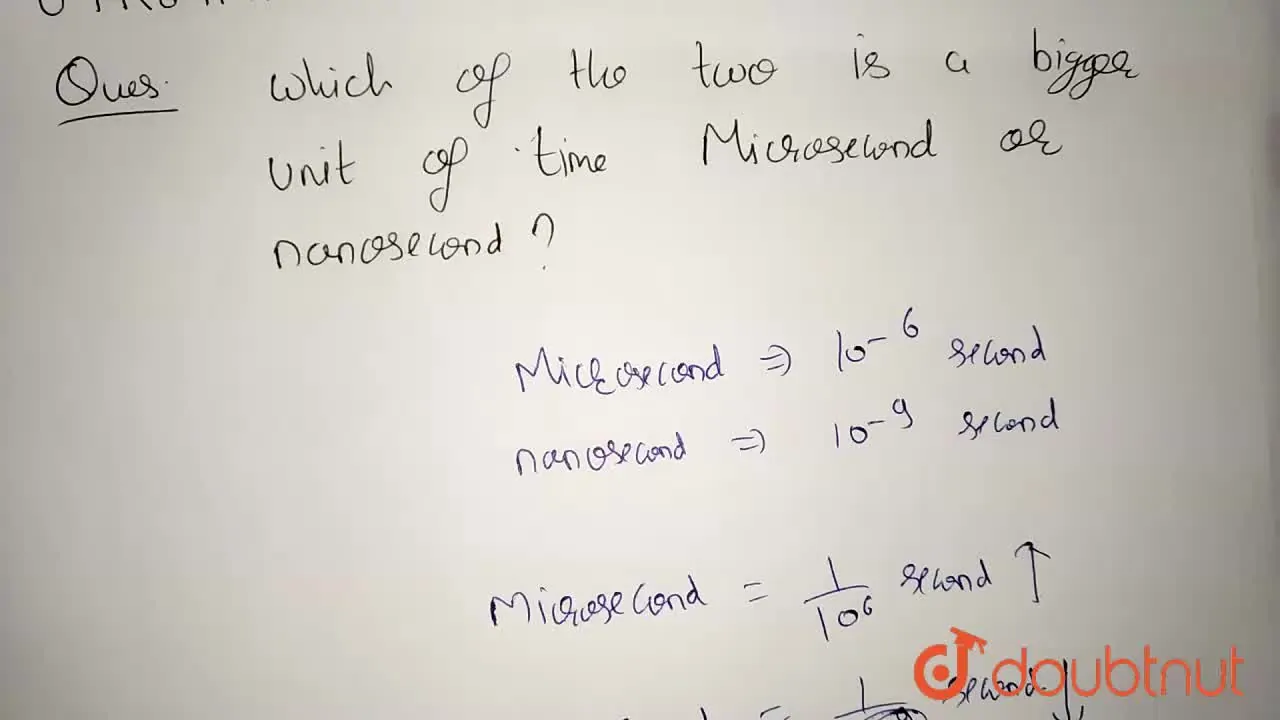 Ques. which of the two is a bigger
unit of time Microsecond or
nanosecond?
Microsecond ⇒ 10⁻⁶ second
nanosecond ⇒ 10⁻⁹ second
Microsecond = 1/10⁶ second ↑
= 1 second ↓
doubtnut